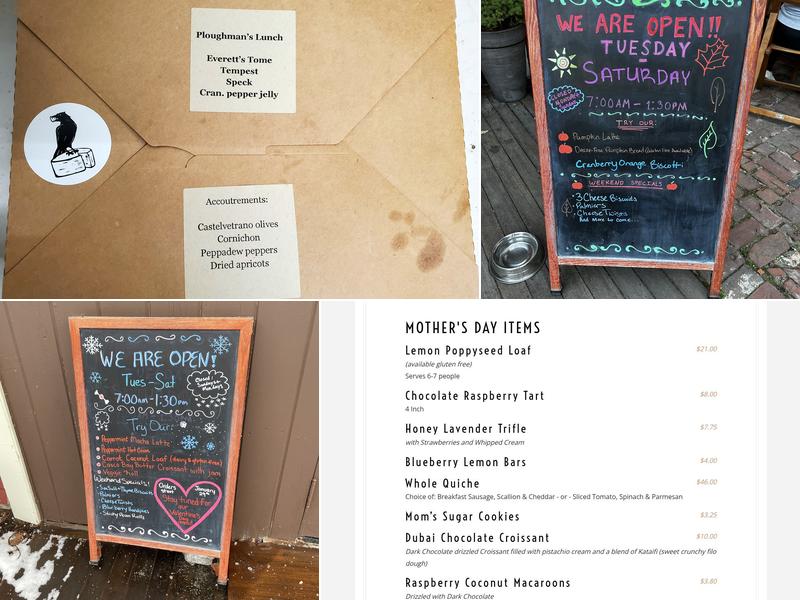 Ploughman's Lunch
Everett's Tome
Tempest
Speck
Cran. pepper jelly
Accoutrements:
Castelvetrano olives
Cornichon
Peppadew peppers
Dried apricots
WE ARE OPEN!!
TUESDAY
-
SATURDAY
CLOSED
SUNDAY &
MONDAY
7:00AM - 1:30PM
TRY OUR:
Pumpkin Latte
Dairy-Free Pumpkin Bread (Gluten Free Available)
Cranberry Orange Biscotti
WEEKEND SPECIALS
3 Cheese Biscuits
Palmiers
Cheese Twists
And More to come...
WE ARE OPEN!
Tues-Sat
Closed
Sundays &
Mondays
7:00am-1:30pm
Try Our:
Peppermint Mocha Latte
Peppermint Hot Cocoa
Carrot Coconut Loaf (dairy & gluten free)
Casco Bay Butter Croissant with jam
Veggie Roll
Weekend Specials!
Palmiers
Cheese Twists
Blueberry Handpies
Sticky Pecan Rolls
Orders
start
January
29th
Stay tuned for
our
Valentine's
MOTHER'S DAY ITEMS
Lemon Poppyseed Loaf $21.00
(available gluten free)
Serves 6-7 people
Chocolate Raspberry Tart $8.00
4 Inch
Honey Lavender Trifle $7.75
with Strawberries and Whipped Cream
Blueberry Lemon Bars $4.00
Whole Quiche $46.00
Choice of: Breakfast Sausage, Scallion & Cheddar - or - Sliced Tomato, Spinach & Parmesan
Mom's Sugar Cookies $3.25
Dubai Chocolate Croissant $10.00
Dark Chocolate drizzled Croissant filled with pistachio cream and a blend of Kataifi (sweet crunchy filo
dough)
Raspberry Coconut Macaroons $3.80
Drizzled with Dark Chocolate